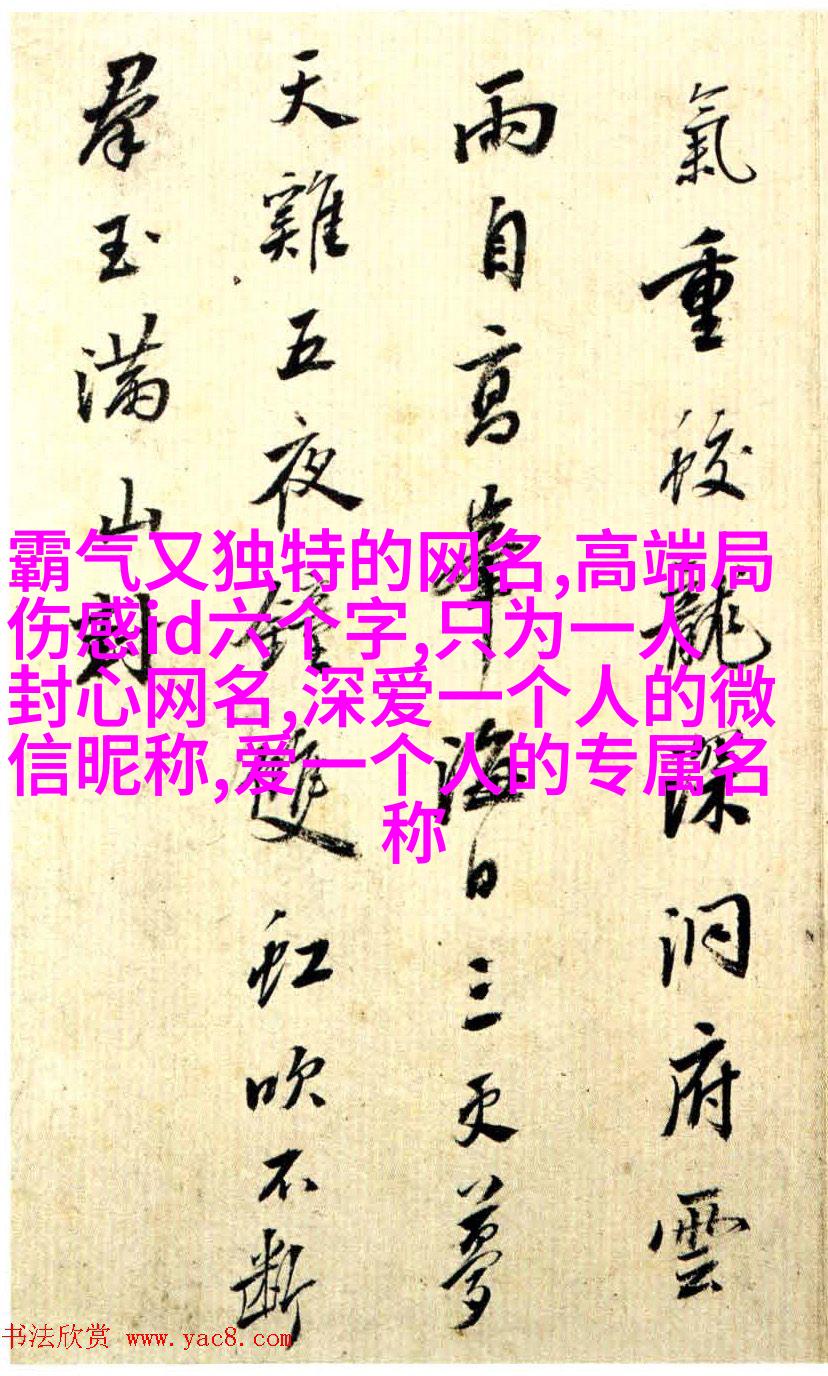 氣重蛟龍深洞府雲
雨自高峯海日三更夢
天雞五夜鐘雙虹吹不斷
羣玉滿山封
霸气又独特的网名,高端局
伤感id六个字,只为一人
封心网名,深爱一个人的微
信昵称,爱一个人的专属名
称
书法欣赏 www.yac8.com